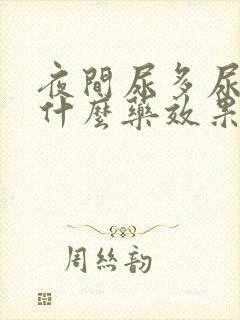 夜間尿多尿
什麼藥效果
周絲韵